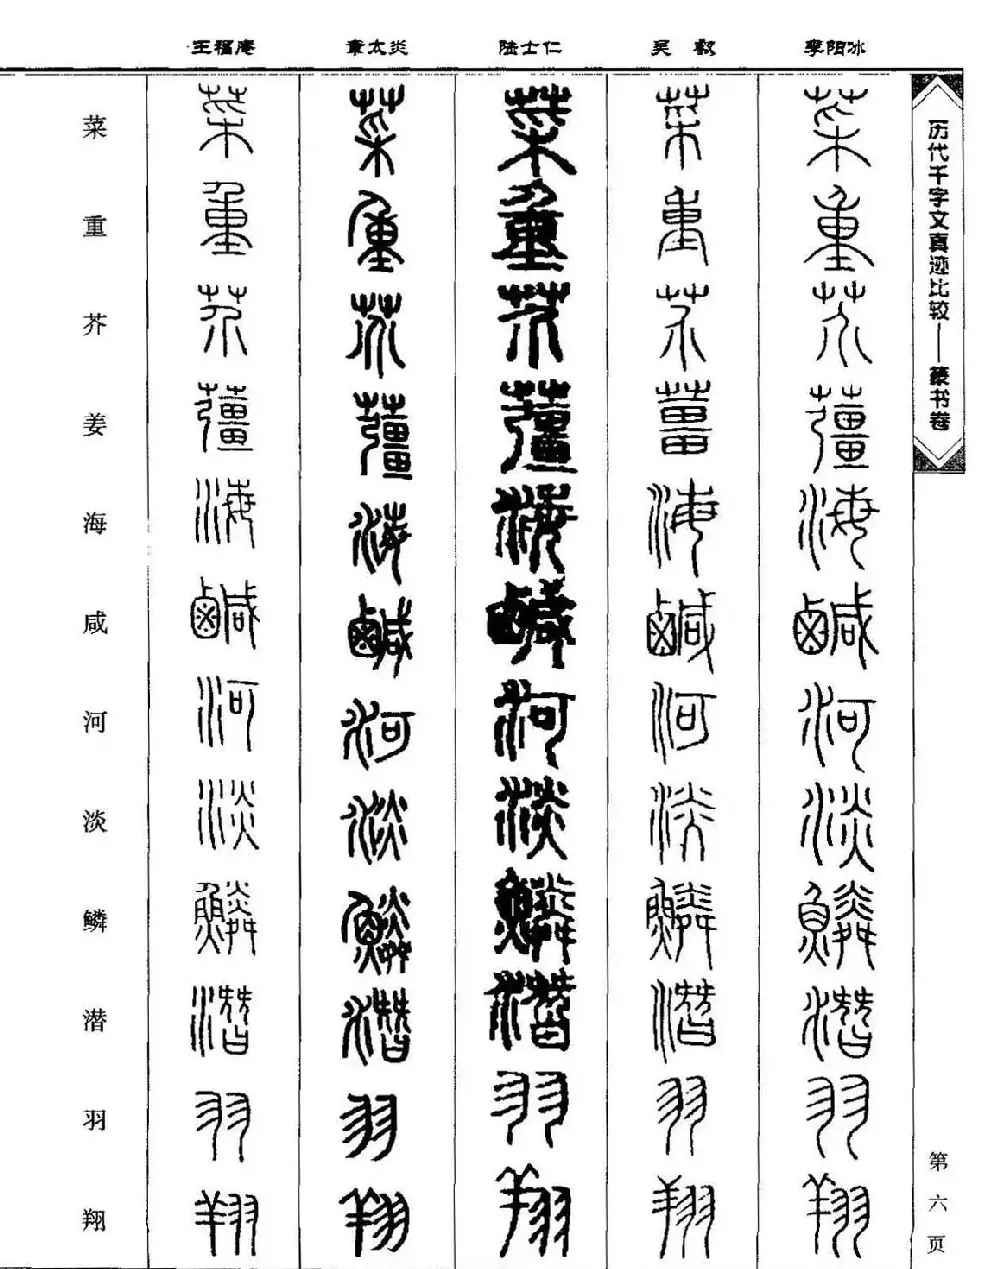 李阳冰 吴叡 陆士仁 章太炎 王福庵
历代千字文真迹比较——篆书卷
第六页
菜 菜 菜 菜 菜 菜
重 重 重 重 重 重
芥 芥 芥 芥 芥 芥
薑 薑 薑 薑 薑 姜
海 海 海 海 海 海
鹹 鹹 鹹 鹹 鹹 咸
河 河 河 河 河 河
淡 淡 淡 淡 淡 淡
鱗 鱗 鱗 鱗 鱗 鳞
潛 潛 潛 潛 潛 潜
羽 羽 羽 羽 羽 羽
翔 翔 翔 翔 翔 翔